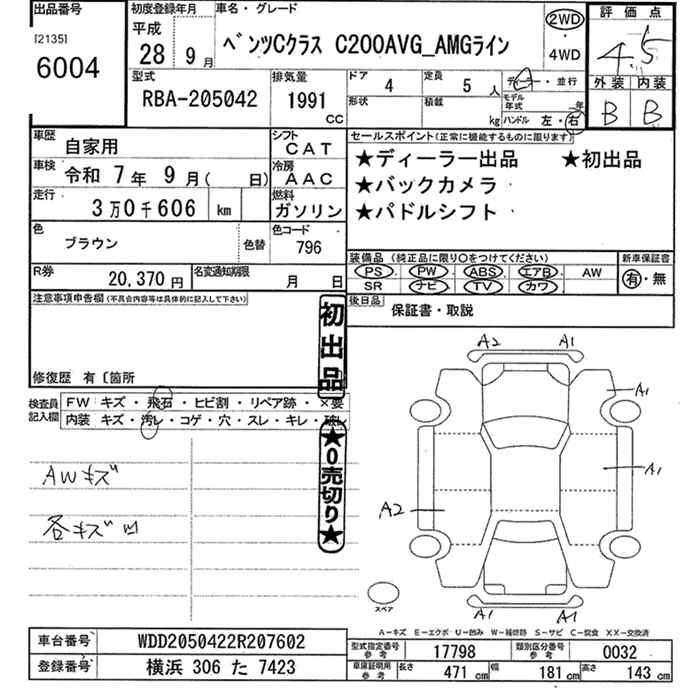 出品番号
[2135]
6004
初度登録年月
平成
28 年 9 月
車名・グレード
ベンツCクラス C200AVG_AMGライン
2WD
・
4WD
評価点
4.5
外装 内装
B B
型式
RBA-205042
排気量
1991
CC
ドア
4
定員
5 人
形状
積載
kg
ディーラー・並行
モデル年式 年
ハンドル 左・右
車歴
自家用
シフト
CAT
車検
令和 7 年 9 月( 日)
冷房
AAC
走行
3 万 0 千 606 km
燃料
ガソリン
色
ブラウン
色替
色コード
796
R券
20,370 円
名変通知期限
月 日
セールスポイント(正常に機能するものに限ります)
★ディーラー出品 ★初出品
★バックカメラ
★パドルシフト
装備品 (純正品に限り〇をつけてください)
PS・PW・ABS・エアB・AW
SR ナビ・TV・カワ
新車保証書
有・無
後日品
保証書・取説
注意事項申告欄(不具合内容等は具体的に記入して下さい)
修復歴 有 [箇所
初出品
★0売切り★
検査員記入欄
FW キズ・飛石・ヒビ割・リペア跡・×要
内装 キズ・汚レ・コゲ・穴・スレ・キレ・破レ
AWキズ
各キズ凹
A2 A1
A1
A1
A2
A2 A1
スペア
A−キズ E−エクボ U−凹み W−補修跡 S−サビ C−腐食 XX−交換済
車台番号
WDD2050422R207602
登録番号
横浜 306 た 7423
型式指定番号 参考
17798
類別区分番号 参考
0032
車庫証明用 参考
長さ 471 cm 幅 181 cm 高さ 143 cm